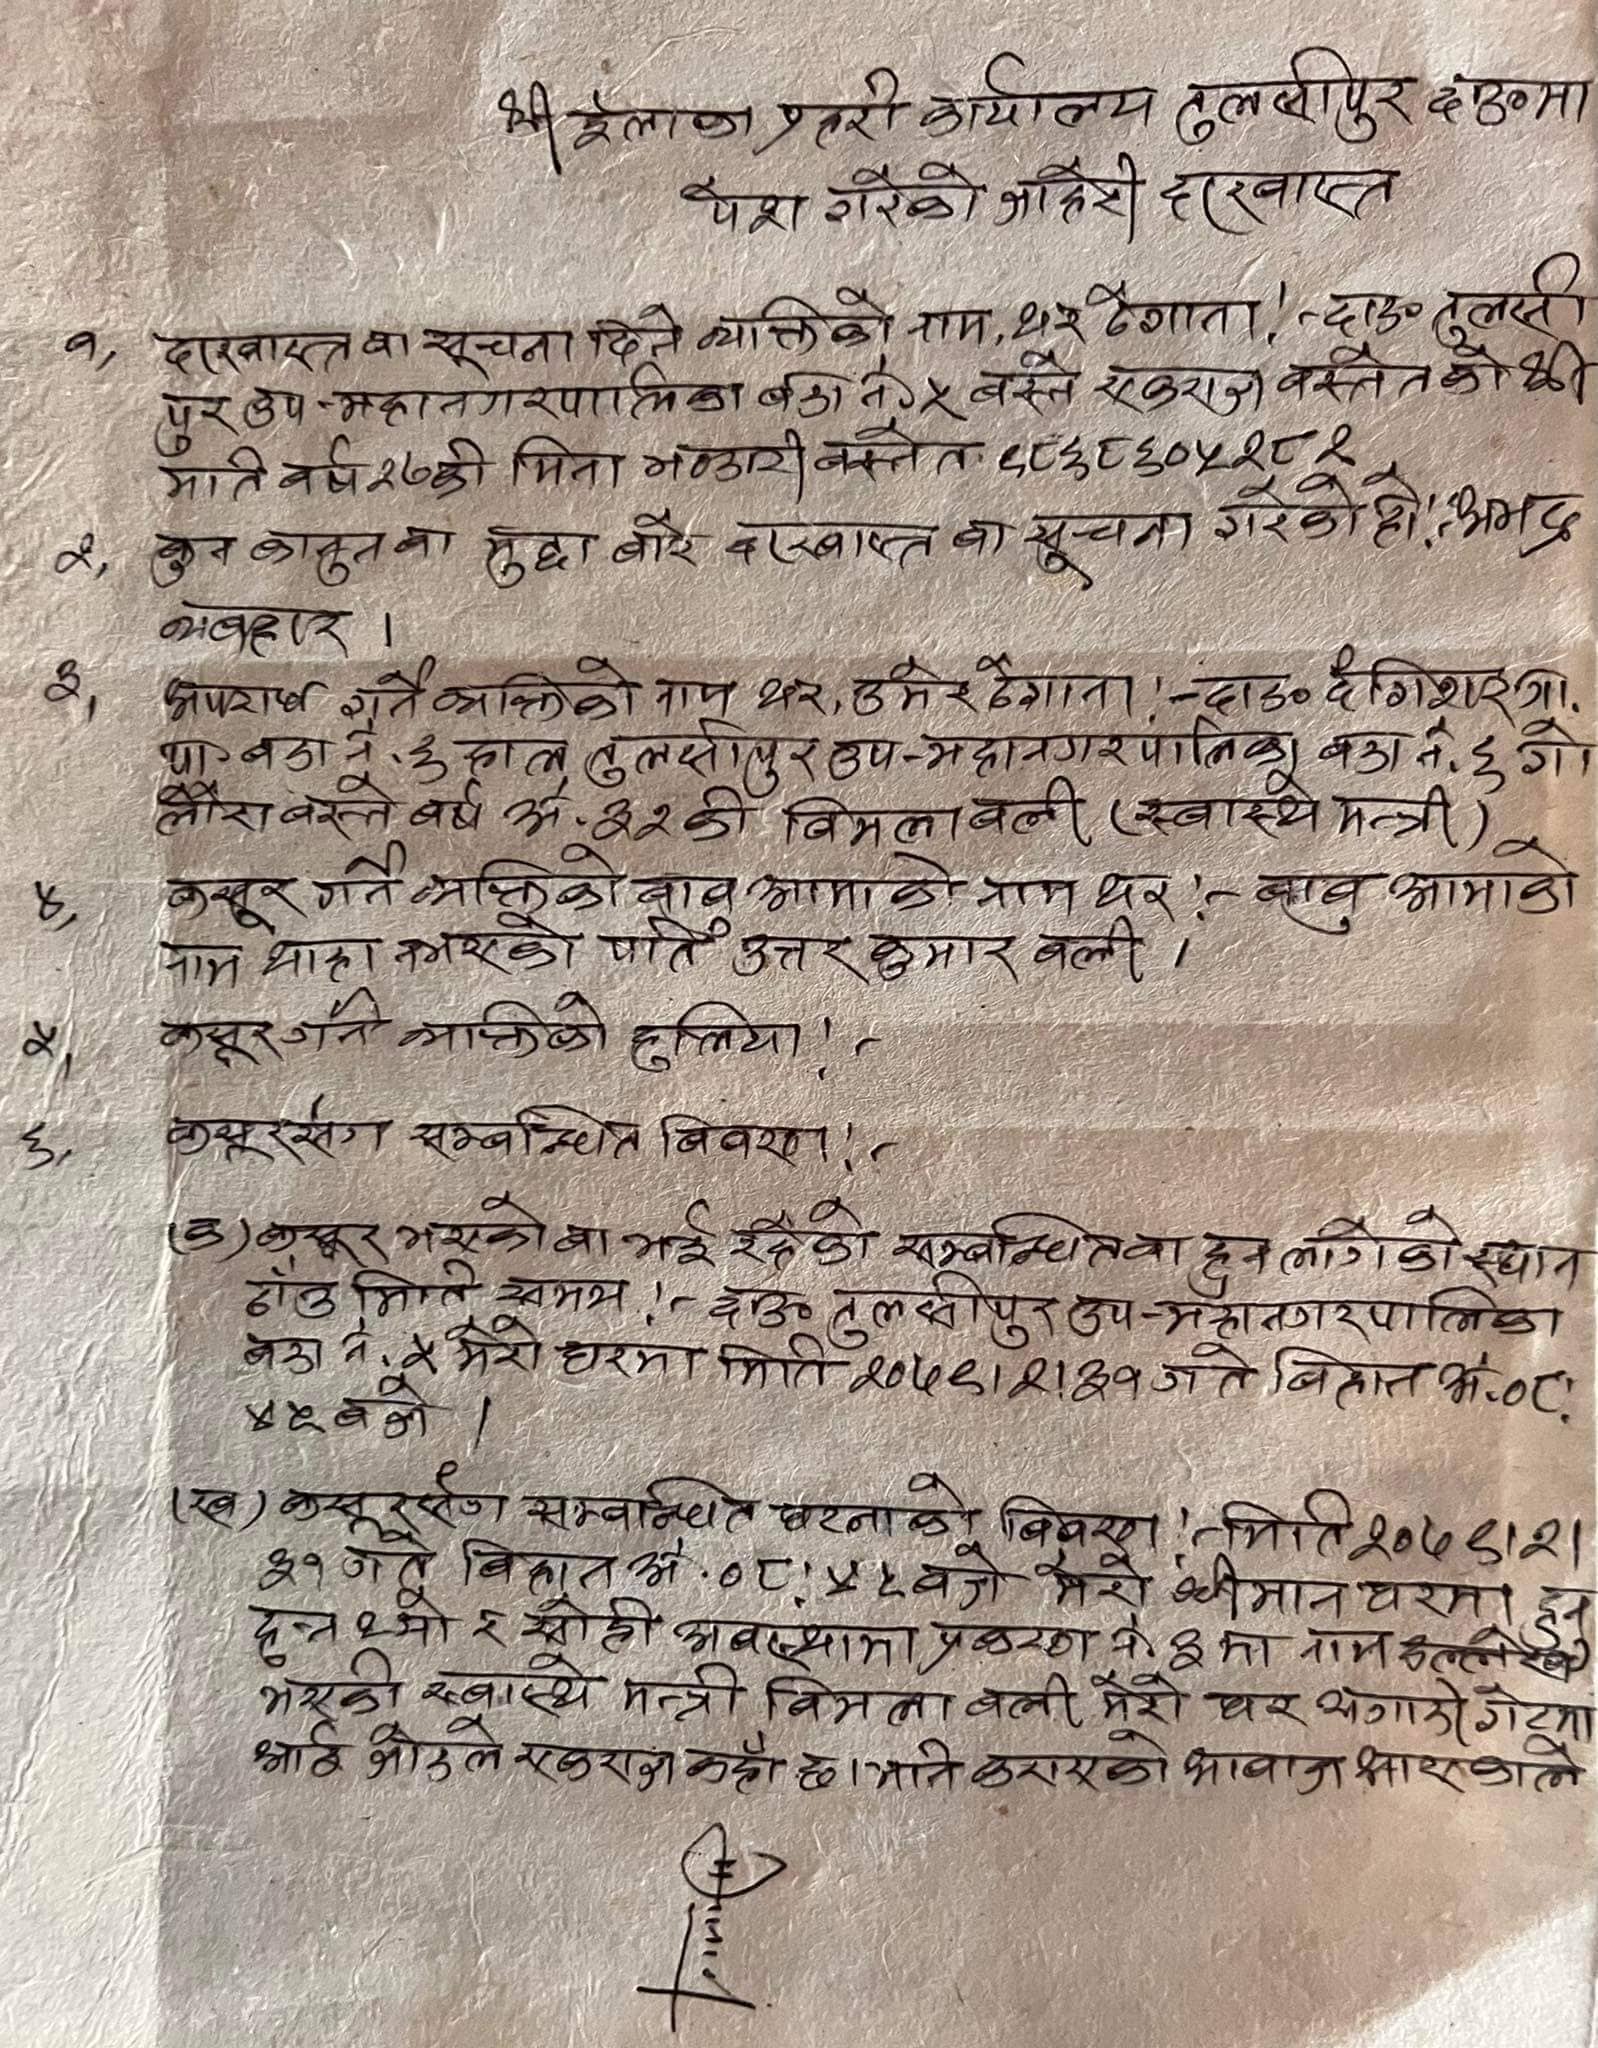 श्री ईलाका प्रहरी कार्यालय तुलसीपुर दाङमा
पेश गरेको जाहेरी दरखास्त
१, दरखास्त वा सूचना दिने व्यक्तिको नाम, थर ठेगाना:- दाङ तुलसी
पुर उप-महानगरपालिका वडा नं. ५ बस्ने एकराज वस्नेतको श्री
मति वर्ष २७की मिना भण्डारी वस्नेत ९८६८६०५२८२
२, कुन कानुन वा मुद्दा बारे दरखास्त वा सूचना गरेको हो:- अभद्र
व्यवहार ।
३, अपराध गर्ने व्यक्तिको नाम थर, उमेर ठेगाना:- दाङ दंगिशरण गा.
पा. वडा नं. ३ हाल तुलसीपुर उप-महानगरपालिका वडा नं. ६ गो
लौरा बस्ने वर्ष अं. ३२की बिमला वली (स्वास्थ्य मन्त्री)
४, कसूर गर्ने व्यक्तिको बाबु आमाको नाम थर:- बाबु आमाको
नाम थाहा नभएको पति उत्तर कुमार वली ।
५, कसूर गर्ने व्यक्तिको हुलिया:-
६, कसूरसँग सम्बन्धित बिवरण:-
(क) कसूर भएको वा भई रहेको सम्बन्धित वा हुन लागेको स्थान
ठाँउ मिति समय:- दाङ तुलसीपुर उप-महानगरपालिका
वडा नं. ५ मेरो घरमा मिति २०७९।२।३१ गते बिहान अं. ०८:
४५ बजे ।
(ख) कसूरसँग सम्बन्धित घटनाको बिवरण:- मिति २०७९।२।
३१ गते बिहान अं. ०८:४५ बजे मेरो श्रीमान घरमा हुनु
हुन्न थ्यो र सोही अवस्थामा प्रकरण नं. ३ मा नाम उल्लेख
भएकी स्वास्थ्य मन्त्री बिमला वली मेरो घर अगाडी गेटमा
आई जोडले एकराज कहाँ छ। भनि कराएको आवाज आएकाले